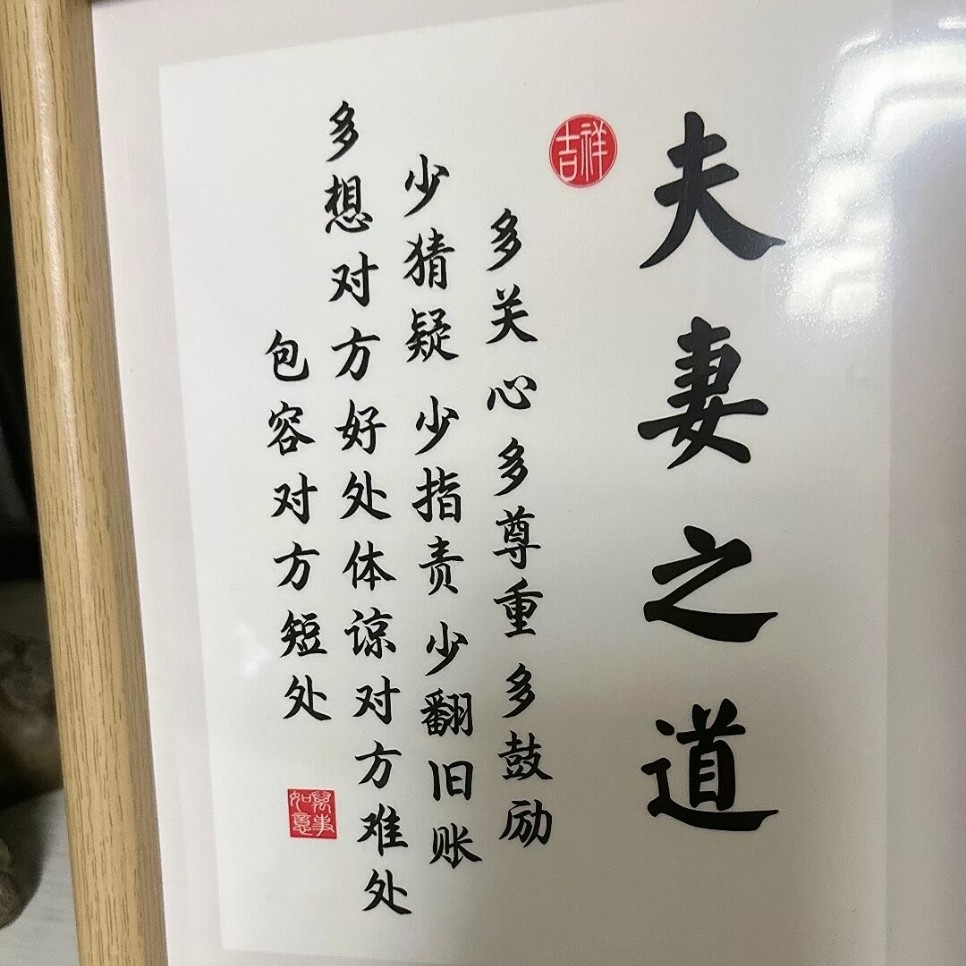 夫妻之道
吉祥
多关心 多尊重 多鼓励
少猜疑 少指责 少翻旧账
多想对方好处体谅对方难处
包容对方短处
萬事如意